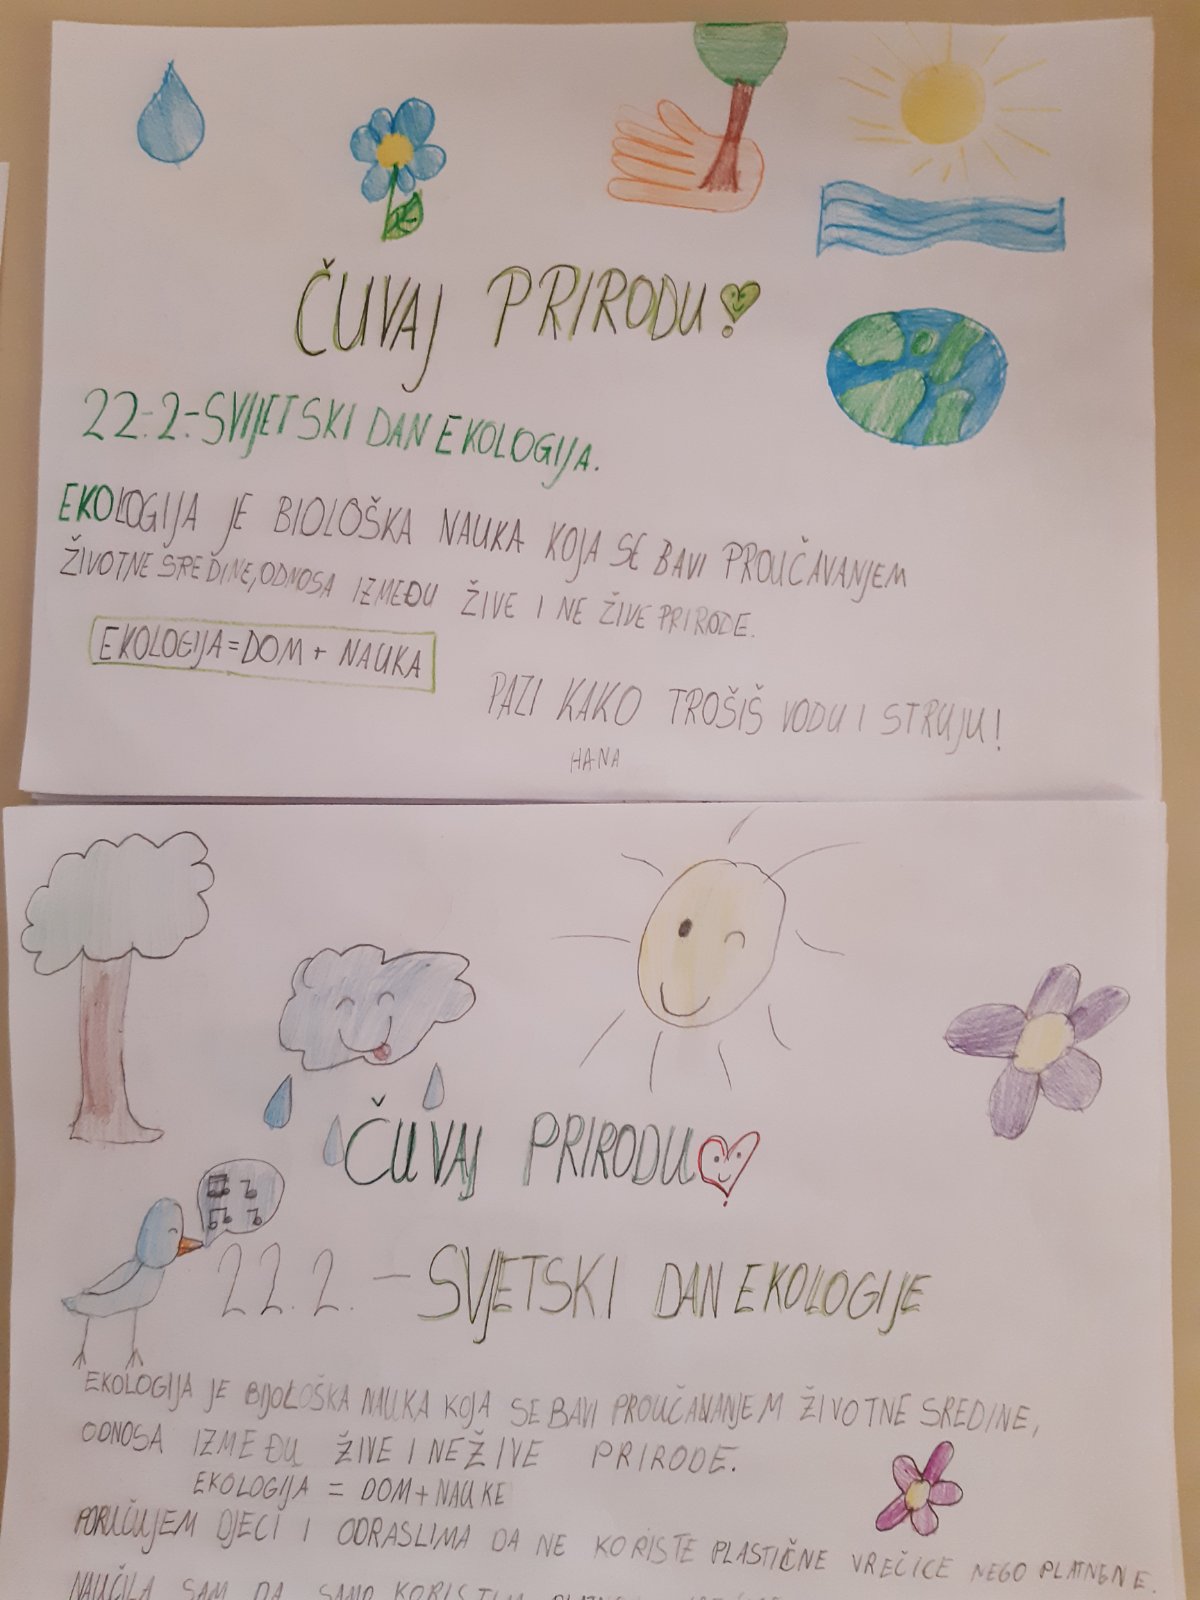 ČUVAJ PRIRODU!
22.2.-SVIJETSKI DAN EKOLOGIJA.
EKOLOGIJA JE BIOLOŠKA NAUKA KOJA SE BAVI PROUČAVANJEM
ŽIVOTNE SREDINE, ODNOSA IZMEĐU ŽIVE I NE ŽIVE PRIRODE.
EKOLOGIJA=DOM + NAUKA
PAZI KAKO TROŠIŠ VODU I STRUJU!
HANA
ČUVAJ PRIRODU
22.2. - SVJETSKI DAN EKOLOGIJE
EKOLOGIJA JE BIJOLOŠKA NAUKA KOJA SE BAVI PROUČAVANJEM ŽIVOTNE SREDINE,
ODNOSA IZMEĐU ŽIVE I NEŽIVE PRIRODE.
EKOLOGIJA = DOM + NAUKE
PORUČUJEM DJECI I ODRASLIMA DA NE KORISTE PLASTIČNE VREČICE NEGO PLATNENE.
NAUČILA SAM DA SAMO KORISTIM